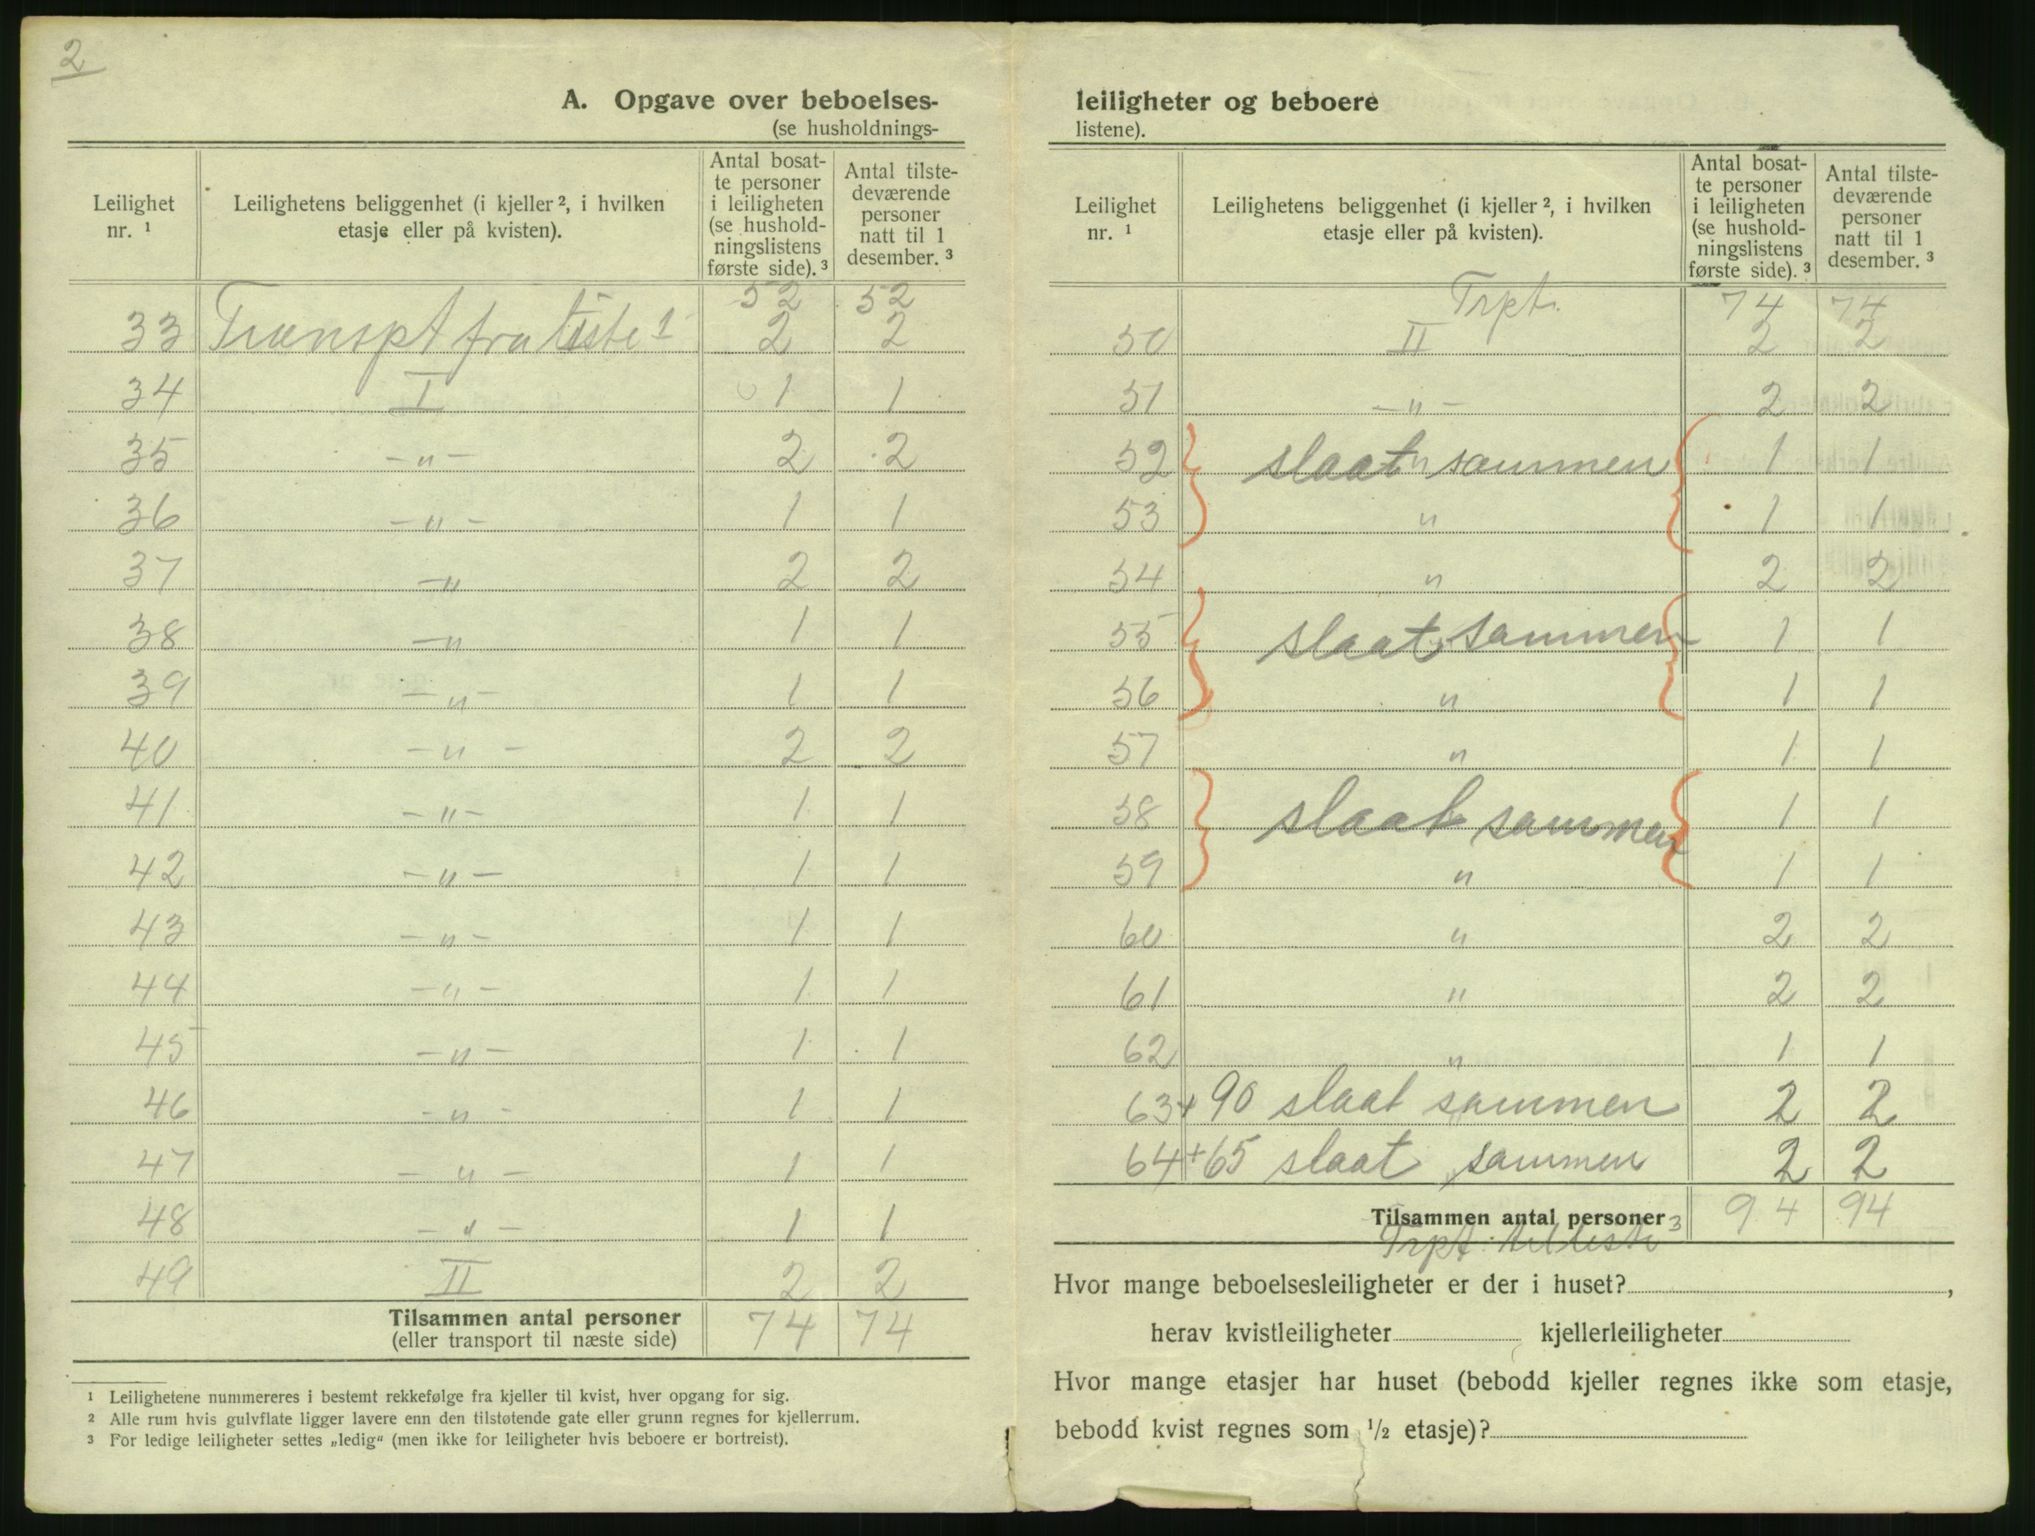 2
A. Opgave over beboelses-
(se husholdnings-
Leilighet nr. ¹
Leilighetens beliggenhet (i kjeller ², i hvilken etasje eller på kvisten).
Antal bosat-te personer i leiligheten (se hushold-ningslistens første side). ³
Antal tilste-deværende personer natt til 1 desember. ³
52 52
33 Transpt fra liste 1 2 2
34 I 1 1
35 -"- 2 2
36 -"- 1 1
37 -" 2 2
38 -" 1 1
39 -"- 1 1
40 -"- 2 2
41 -"- 1 1
42 -"- 1 1
43 -"- 1 1
44 -"- 1 1
45 -"- 1 1
46 -"- 1 1
47 -"- 1 1
48 -"- 1 1
49 II 2 2
Tilsammen antal personer 74 74
(eller transport til næste side)
¹ Leilighetene nummereres i bestemt rekkefølge fra kjeller til kvist, hver opgang for sig.
² Alle rum hvis gulvflate ligger lavere enn den tilstøtende gate eller grunn regnes for kjellerrum.
³ For ledige leiligheter settes „ledig“ (men ikke for leiligheter hvis beboere er bortreist).
leiligheter og beboere
listene).
Leilighet nr. ¹
Leilighetens beliggenhet (i kjeller ², i hvilken etasje eller på kvisten).
Antal bosat-te personer i leiligheten (se hushold-ningslistens første side). ³
Antal tilste-deværende personer natt til 1 desember. ³
Trpt. 74 74
50 II 2 2
51 -"- 2 2
52 slaat " sammen 1 1
53 " 1 1
54 " 2 2
55 slaat sammen 1 1
56 " 1 1
57 " 1 1
58 slaat sammen 1 1
59 " 1 1
60 " 2 2
61 " 2 2
62 " 1 1
63 + 90 slaat sammen 2 2
64 + 65 slaat sammen 2 2
Tilsammen antal personer 94 94
Trpt. til liste 3
Hvor mange beboelsesleiligheter er der i huset? ,
herav kvistleiligheter kjellerleiligheter
Hvor mange etasjer har huset (bebodd kjeller regnes ikke som etasje,
bebodd kvist regnes som ½ etasje)?